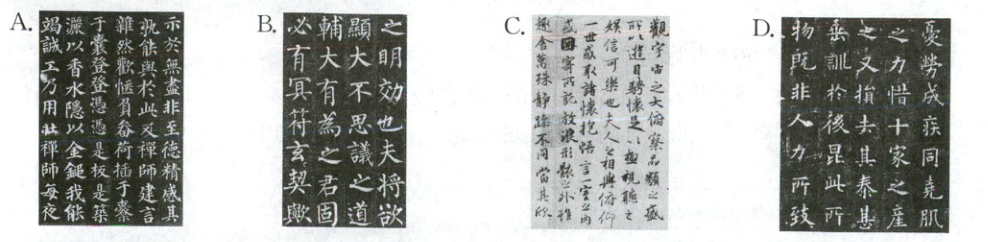 A.
示於無盡非至德精感其
孰能與於此及禪師建言
雜然歡愜負畚荷插于橐
于囊登登憑憑是板是築
灑以香水隱以金鎚我能
竭誠工乃用壯禪師每夜
B.
之明効也夫将欲
顯大不思議之道
輔大有為之君固
必有冥符玄契歟
C.
觀宇宙之大俯察品類之盛
所以遊目騁懷足以極視聽之
娛信可樂也夫人之相與俯仰
一世或取諸懷抱悟言一室之內
或因寄所託放浪形骸之外雖
趣舍萬殊靜躁不同當其欣
D.
憂勞成疾同堯肌
之力惜十家之産
之又損去其泰甚
垂訓於後昆此所
物既非人力所致